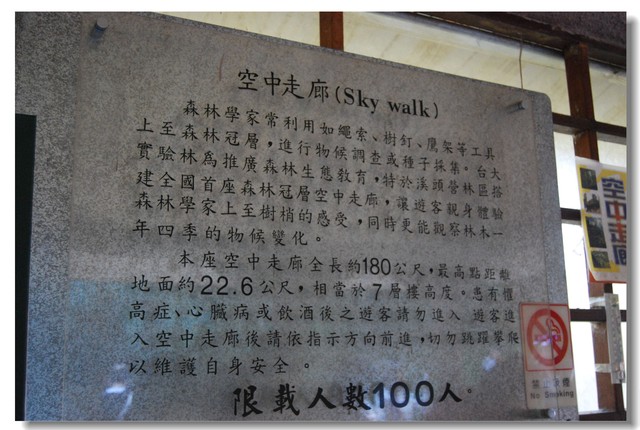 空中走廊(Sky walk)
森林學家常利用如繩索、樹釘、鷹架等工具
上至森林冠層,進行物候調查或種子採集。台大
實驗林為推廣森林生態教育,特於溪頭營林區搭
建全國首座森林冠層空中走廊,讓遊客親身體驗
森林學家上至樹梢的感受,同時更能觀察林木一
年四季的物候變化。
本座空中走廊全長約180公尺,最高點距離
地面約22.6公尺,相當於7層樓高度。患有懼
高症、心臟病或飲酒後之遊客請勿進入 遊客進
入空中走廊後請依指示方向前進,切勿跳躍攀爬
以維護自身安全。
限載人數100人。
空中走廊
禁止吸煙
No Smoking